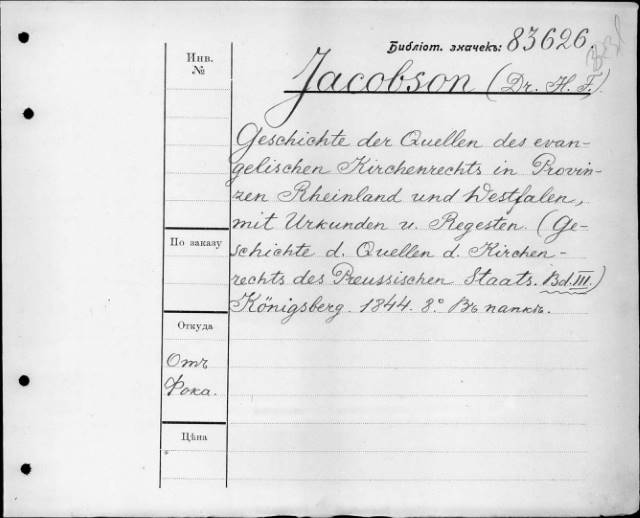 Библіот. значекъ: 83626.
Инв.
№
Jacobson (Dr. H. F.)
Geschichte der Quellen des evan-
gelischen Kirchenrechts in Provin-
zen Rheinland und Westfalen,
mit Urkunden u. Regesten. (Ge-
schichte d. Quellen d. Kirchen-
rechts des Preussischen Staats. Bd. III.)
Königsberg. 1844. 8°. Въ папкѣ.
По заказу
Откуда
Отъ
Фока.
Цѣна